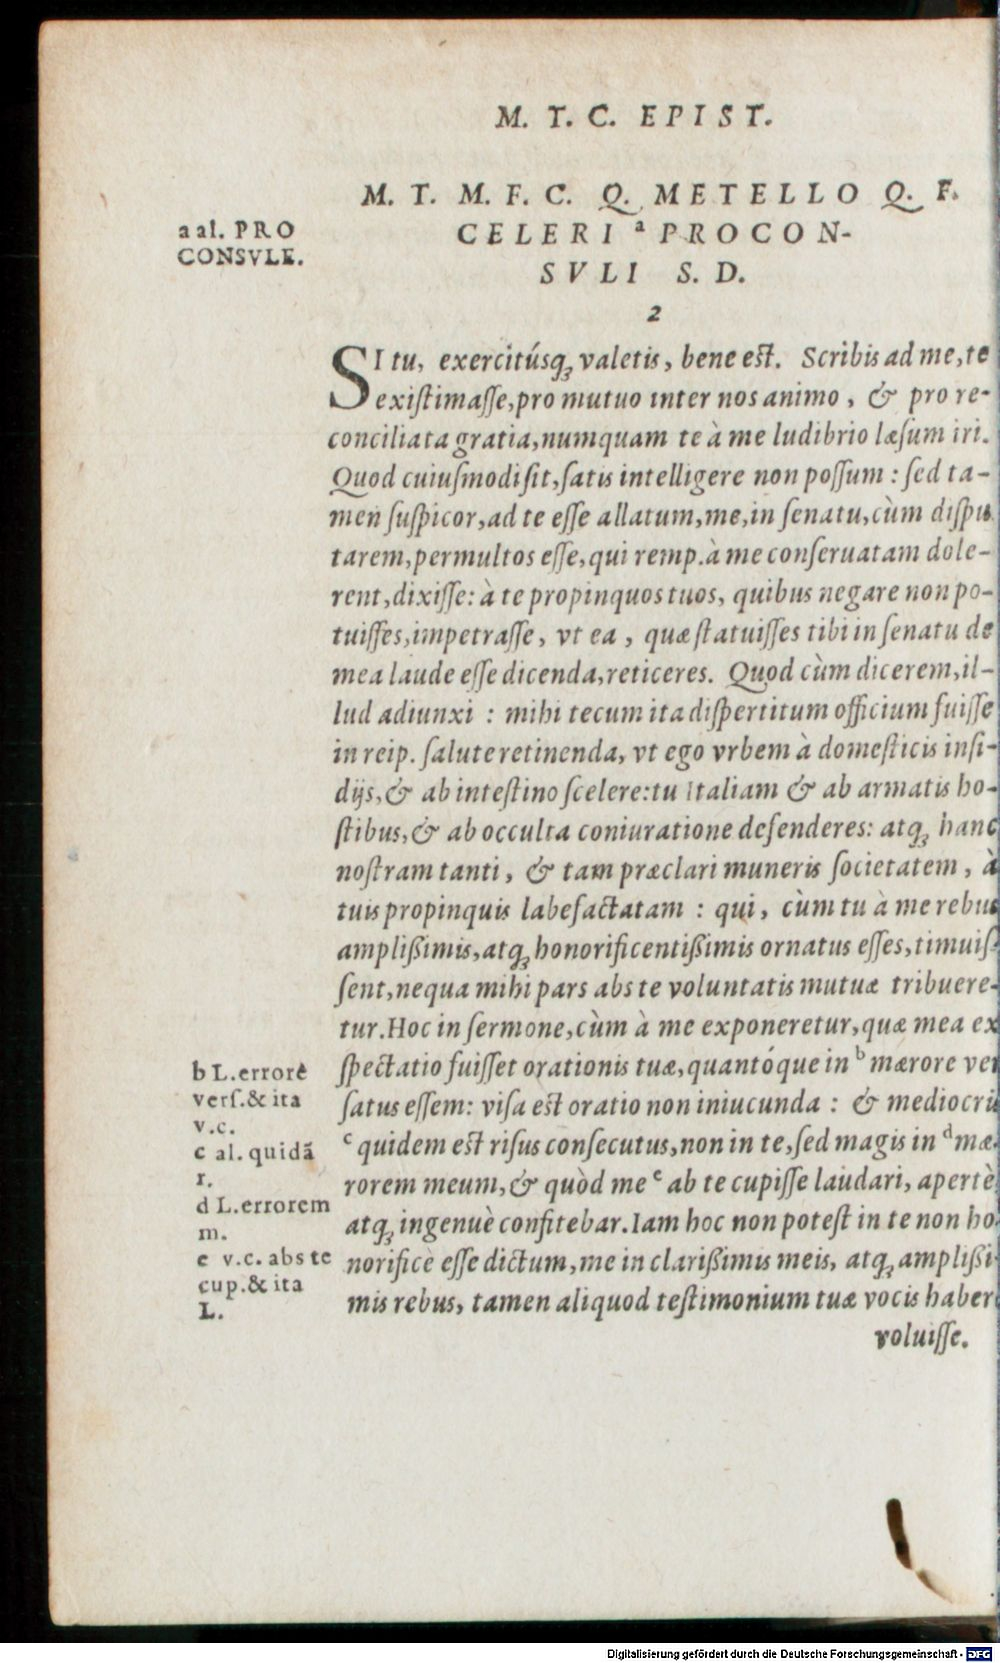 M. T. C. EPIST.
M. T. M. F. C. Q. METELLO Q. F.
CELERI ª PROCON-
SVLI S. D.
2
a al. PRO
CONSVLE.
SI tu, exercitúsq; valetis, bene est. Scribis ad me, te
existimasse, pro mutuo inter nos animo, & pro re-
conciliata gratia, numquam te à me ludibrio læsum iri.
Quod cuiusmodi sit, satis intelligere non possum : sed ta-
men suspicor, ad te esse allatum, me, in senatu, cùm dispu
tarem, permultos esse, qui remp. à me conseruatam dole-
rent, dixisse: à te propinquos tuos, quibus negare non po-
tuisses, impetrasse, vt ea, quæ statuisses tibi in senatu de
mea laude esse dicenda, reticeres. Quod cùm dicerem, il-
lud adiunxi : mihi tecum ita dispertitum officium fuisse
in reip. salute retinenda, vt ego vrbem à domesticis insi-
dijs, & ab intestino scelere: tu Italiam & ab armatis ho-
stibus, & ab occulta coniuratione defenderes: atq; hanc
nostram tanti, & tam præclari muneris societatem, à
tuis propinquis labefactatam : qui, cùm tu à me rebus
amplißimis, atq; honorificentißimis ornatus esses, timuis-
sent, nequa mihi pars abs te voluntatis mutuæ tribuere-
tur. Hoc in sermone, cùm à me exponeretur, quæ mea ex
spectatio fuisset orationis tuæ, quantóque in ᵇ mærore ver
satus essem: visa est oratio non iniucunda : & mediocris
ᶜ quidem est risus consecutus, non in te, sed magis in ᵈ mæ-
rorem meum, & quòd me ᵉ ab te cupisse laudari, apertè
atq; ingenuè confitebar. Iam hoc non potest in te non ho-
norificè esse dictum, me in clarißimis meis, atq; amplißi-
mis rebus, tamen aliquod testimonium tuæ vocis haber
voluisse.
b L. errorē
vers. & ita
v.c.
c al. quidã
r.
d L. errorem
m.
e v.c. abs te
cup. & ita
L.
Digitalisierung gefördert durch die Deutsche Forschungsgemeinschaft - DFG